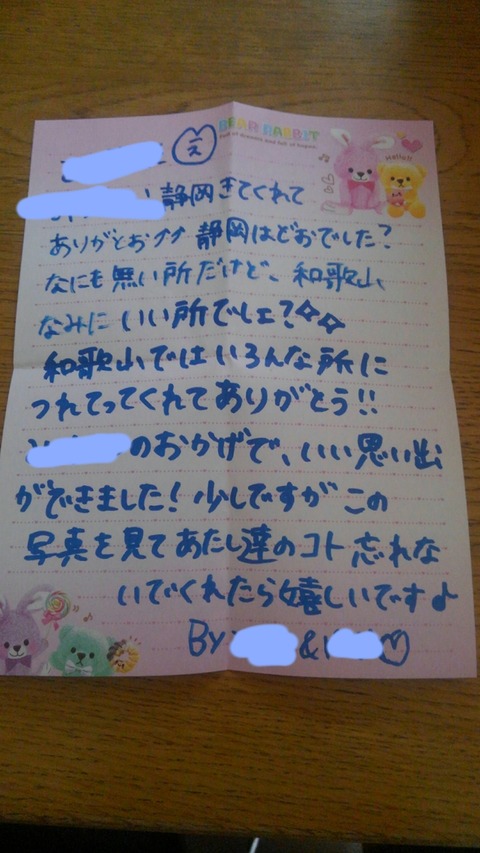 BEAR RABBIT
full of dreams and full of hopes.
Hello!!
え
静岡きてくれて
ありがとおググ 静岡はどおでした?
なにも無い所だけど、和歌山
なみにいい所でしェ?☆☆
和歌山ではいろんな所に
つれてってくれてありがとう!!
のおかげで、いい思い出
ができました!少しですがこの
写真を見てあたし達のコト忘れな
いでくれたら嬉しいです♪
By & ♡